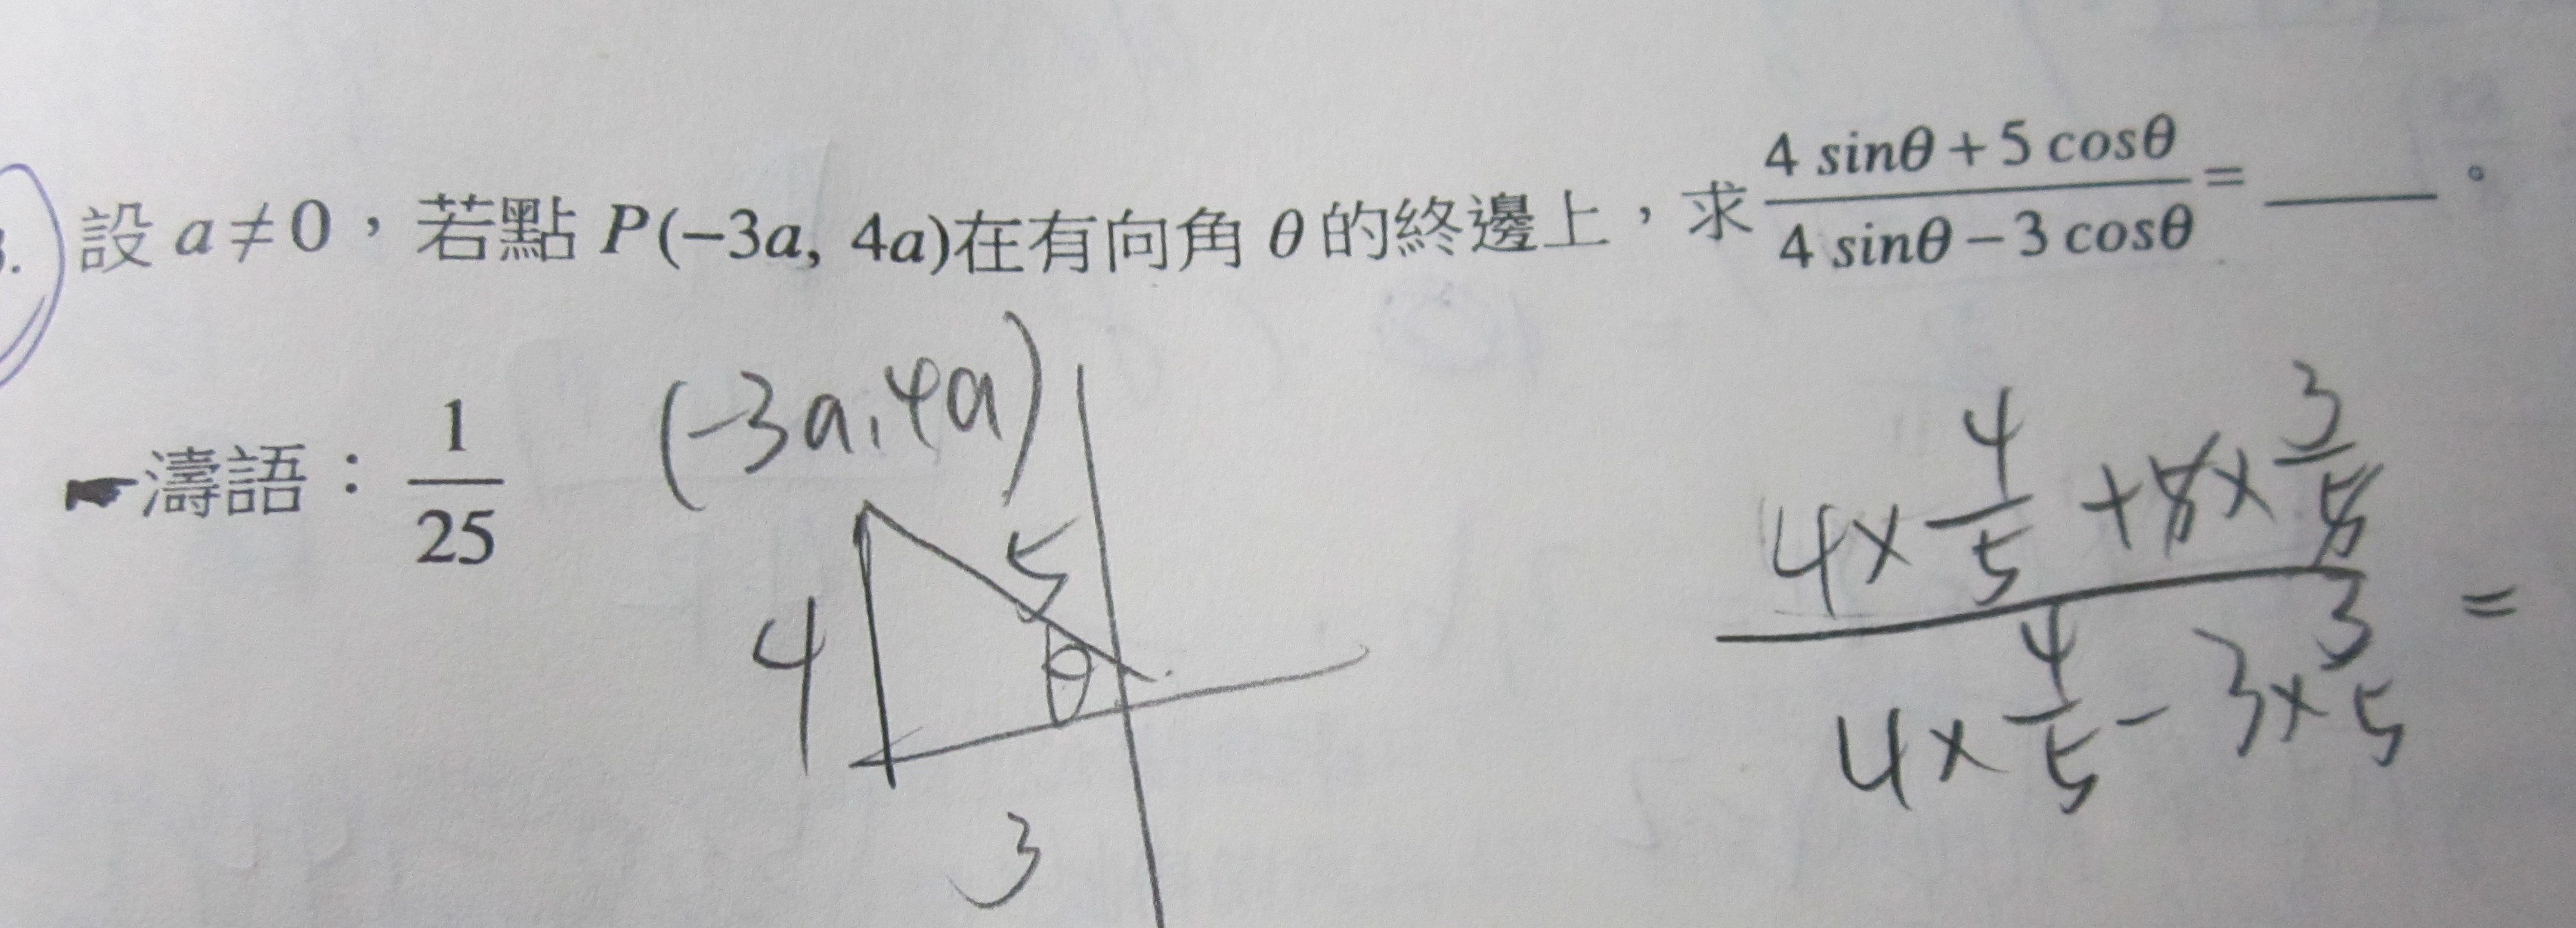 3. 設 a≠0，若點 P(−3a, 4a)在有向角 θ 的終邊上，求 (4 sinθ + 5 cosθ)/(4 sinθ − 3 cosθ) = ____。
☛濤語：1/25
(-3a, 4a)
5
4
θ
3
(4×4/5 + 5×3/5)/(4×4/5 − 3×3/5) =